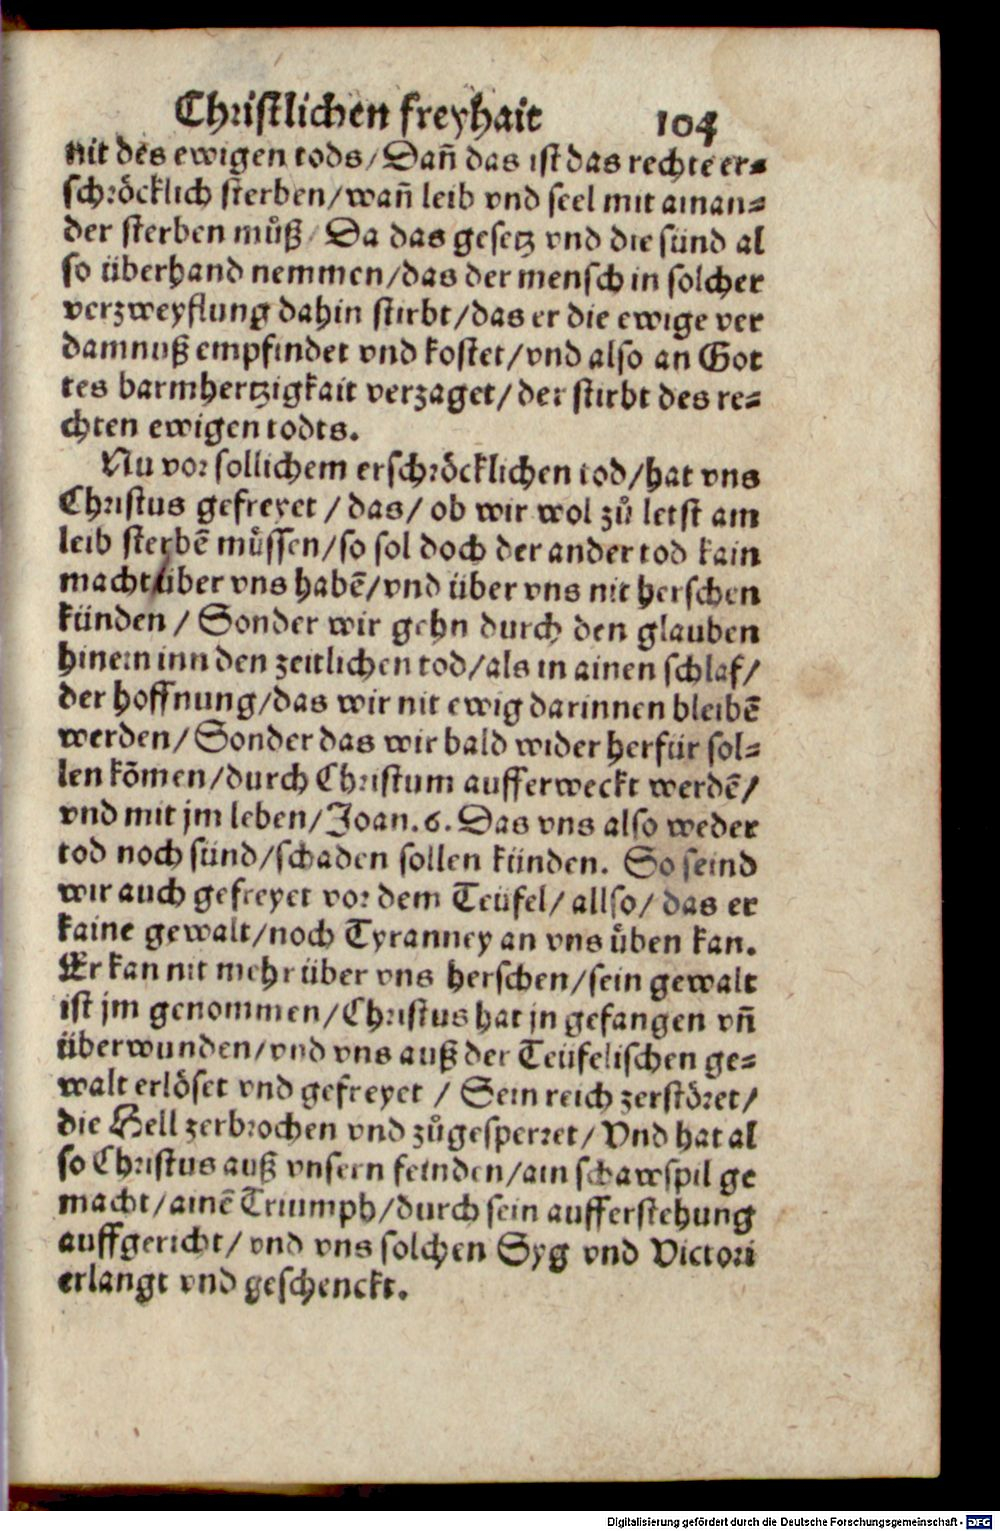 Christlichen freyhait 104
nit des ewigen tods/Dañ das ist das rechte er⸗
schröcklich sterben/wañ leib vnd seel mit ainan⸗
der sterben muͦß/Da das gesetz vnd die sünd al
so überhand nemmen/das der mensch in solcher
verzweyflung dahin stirbt/das er die ewige ver
damnuß empfindet vnd kostet/vnd also an Got
tes barmhertzigkait verzaget/der stirbt des re⸗
chten ewigen todts.
Nu vor sollichem erschröcklichen tod/hat vns
Christus gefreyet / das/ ob wir wol zuͦ letst am
leib sterbē muͤssen/so sol doch der ander tod kain
macht/über vns habē/vnd über vns nit herschen
künden / Sonder wir gehn durch den glauben
hinein inn den zeitlichen tod/als in ainen schlaf/
der hoffnung/das wir nit ewig darinnen bleibē
werden/Sonder das wir bald wider herfür sol⸗
len kōmen/durch Christum aufferweckt werdē/
vnd mit jm leben/Joan.6.Das vns also weder
tod noch sünd/schaden sollen künden. So seind
wir auch gefreyet vor dem Teüfel/ allso/ das er
kaine gewalt/noch Tyranney an vns uͤben kan.
Er kan nit mehr über vns herschen/sein gewalt
ist jm genommen/Christus hat jn gefangen vñ
überwunden/vnd vns auß der Teüfelischen ge⸗
walt erlöset vnd gefreyet / Sein reich zerstöret/
die Hell zerbrochen vnd zuͦgesperret/Vnd hat al
so Christus auß vnsern feinden/ain schawspil ge
macht/ainē Triumph/durch sein aufferstehung
auffgericht/ vnd vns solchen Syg vnd Victori
erlangt vnd geschenckt.
Digitalisierung gefördert durch die Deutsche Forschungsgemeinschaft - DFG